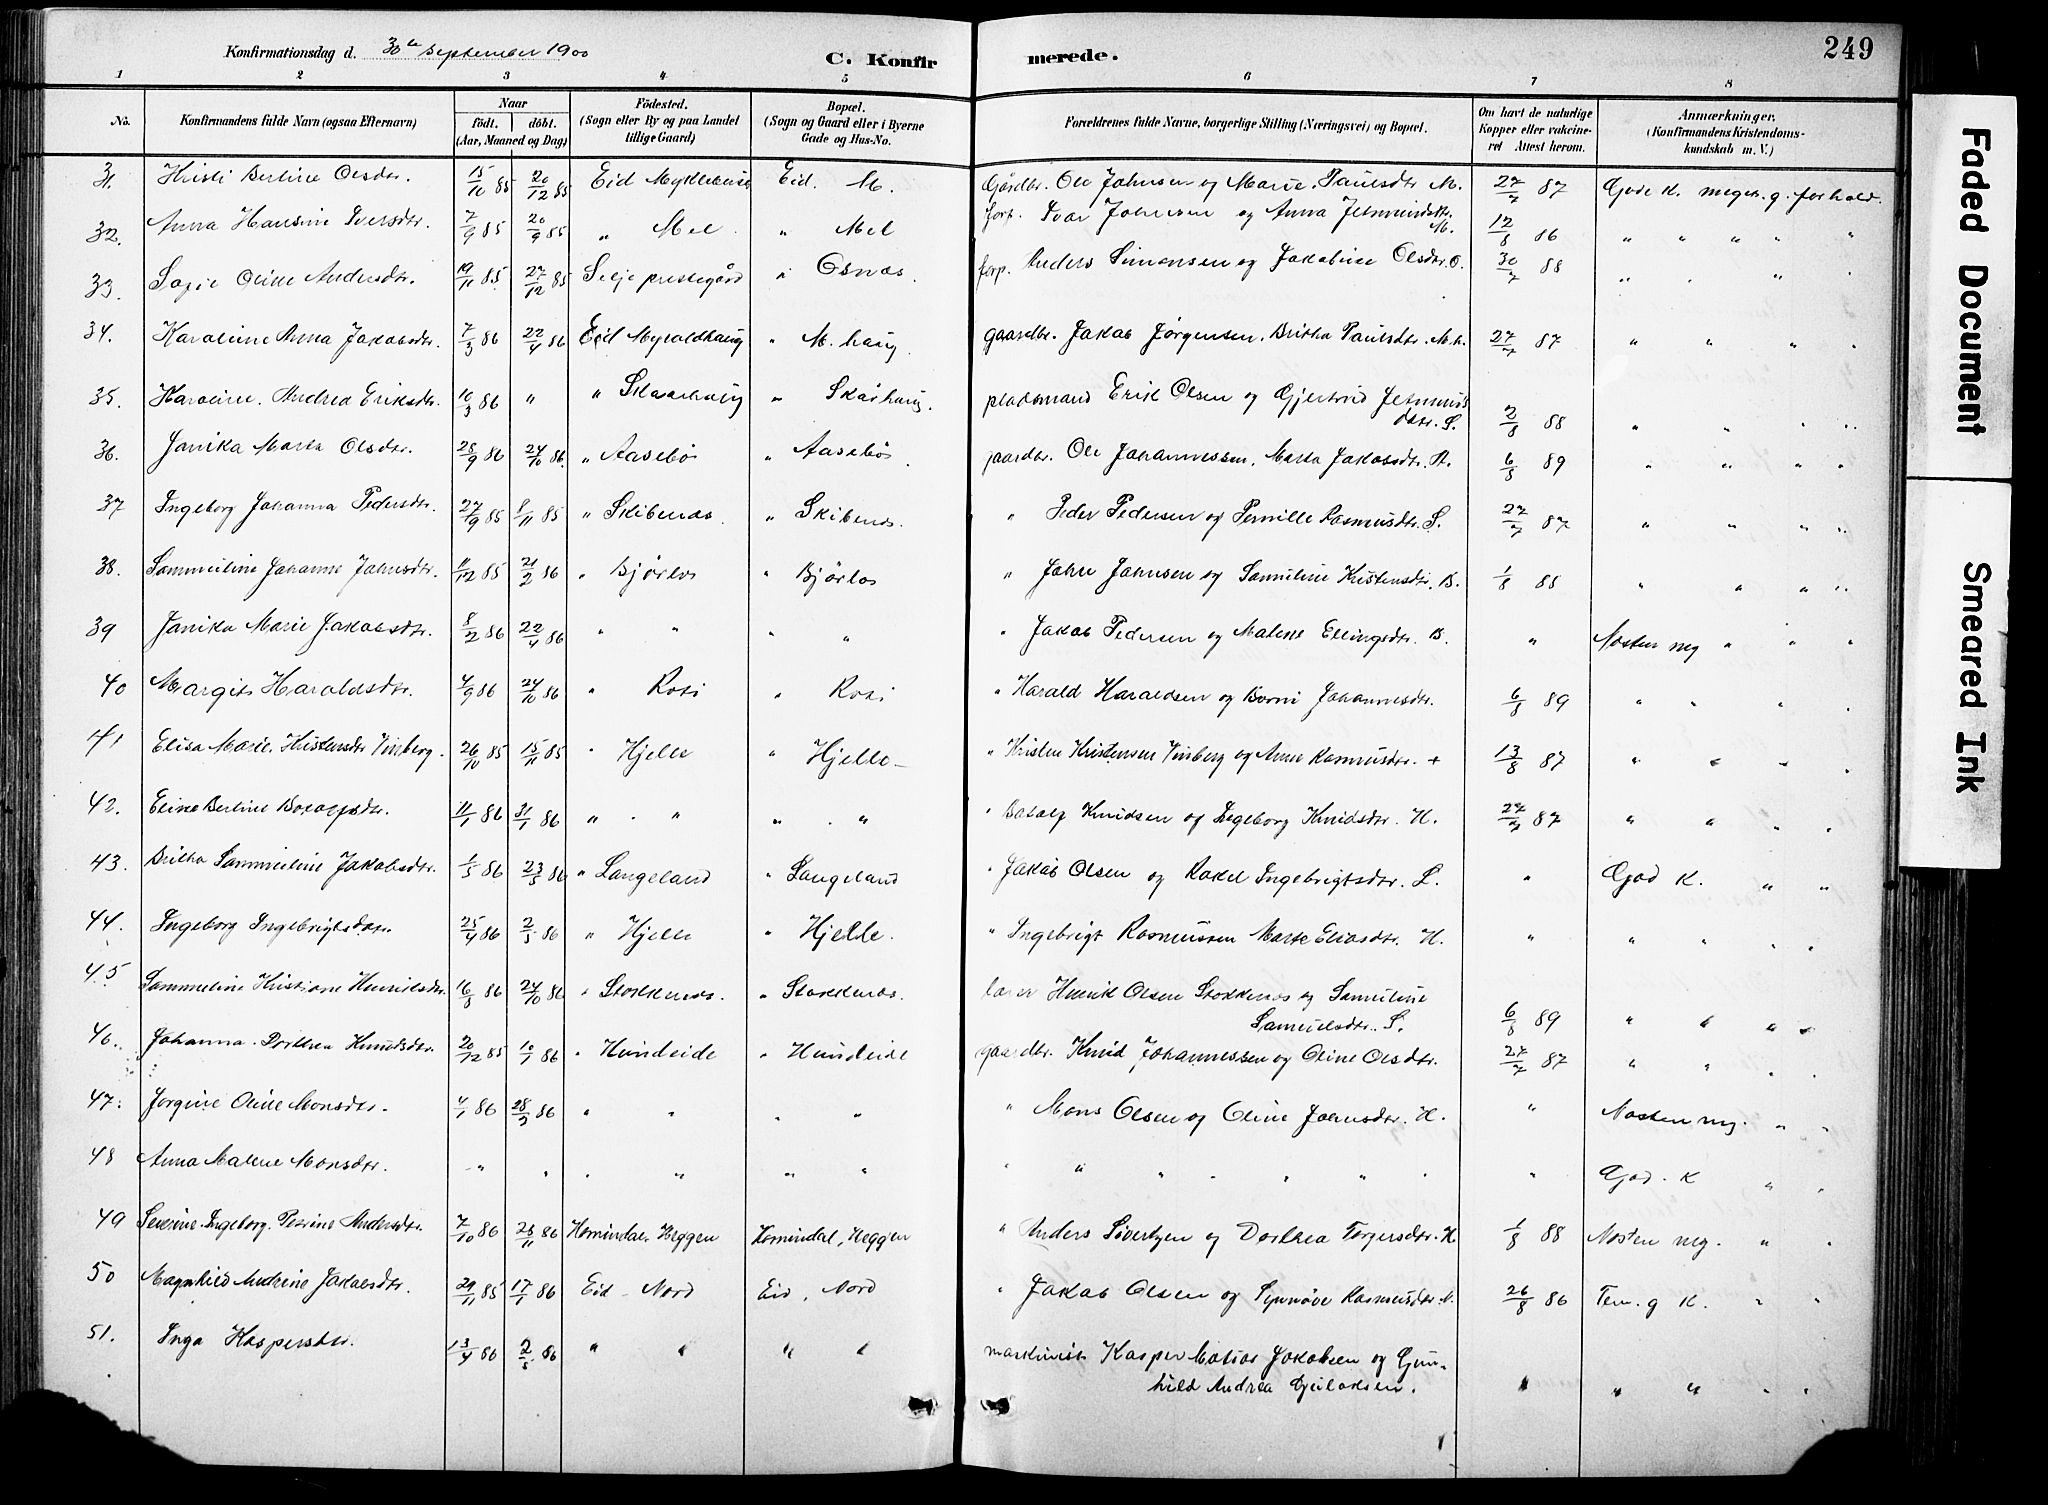 Konfirmationsdag d. 30te September 1900
C. Konfirmerede.
249
1 2 3 4 5 6 7 8
No. Konfirmandens fulde Navn (ogsaa Efternavn) Naar født. døbt. (Aar, Maaned og Dag) Fødested. (Sogn eller By og paa Landet tillige Gaard) Bopæl. (Sogn og Gaard eller i Byerne Gade og Hus-No. Forældrenes fulde Navne, borgerlige Stilling (Næringsvei) og Bopæl. Om havt de naturlige Kopper eller vakcineret Attest herom. Anmærkninger. (Konfirmandens Kristendomskundskab m. V.)
31. Kristi Bertine Olsdtr. 15/10 85 20/12 85 Eid Myklebust Eid. M. Gårdbr. Ole Johnsen og Marie Paulsdtr M. 27/7 87 Gode K. meget g. forhold.
32. Anna Hansine Iversdtr. 7/9 85 20/9 85 " Mel " Mel forp. Ivar Johnsen og Anna Jetmundsdtr. M. 12/8 86 " " " " "
33. Sofie Oline Andersdtr. 19/11 85 27/12 85 Selje prestegård " Osnes. forp. Anders Simonsen og Jakobine Olsdtr. O. 30/7 88 " " " "
34. Karoline Anna Jakobsdtr. 7/3 86 22/4 86 Eid Myroldhaug " M.haug. gaardbr. Jakob Jørgensen. Britha Paulsdtr. M.h. 27/7 87 " " " "
35. Karoline. Andrea Eriksdtr. 10/3 86 " " Skaarhaug " Skårhaug. pladsmand Erik Olsen og Gjertrud Jetmunds dtr. S. 2/8 88 " " " "
36. Janika Marta Olsdtr. 28/9 86 24/10 86. " Aasebø " Aasebø. gaardbr. Ole Johannessen. Marta Jakobsdtr. A. 6/8 89 " " " "
37 Ingeborg Johanna Pedersdtr. 27/9 85 8/11 85 " Skibenes. " Skibenes. " Peder Pedersen og Pernille Rasmusdtr. S. 27/7 87 " " " "
38. Sammeline Johanne Johnsdtr. 11/12 85 21/2 86 " Bjørlo " Bjørlo " John Johnsen og Samuline Kristensdtr. B. 1/8 88 " " " "
39 Janika Marie Jakobsdtr. 8/2 86 22/4 86 " " " " " Jakob Pedersen og Malene Ellingsdtr. B. " Næsten meg " " "
40 Margit Haraldsdtr. 4/9 86 24/10 86 " Roti " Roti " Harald Haraldsen og Borni Johannesdtr. 6/8 89 " " " "
41 Elisa Marie. Kristensdtr Vinberg. 26/10 85 15/11 85 " Hjelle " Hjelle " Kristen Kristensen Vinberg og Anne Rasmusdtr. + 13/8 87 " " " "
42. Eline Bertine Botolfsdtr. 11/1 86 31/1 86 " " " " " Botolf Knudsen og Ingeborg Knudsdtr. H. 27/7 87 " " " "
43. Britha Sammeline Jakobsdtr. 1/5 86 23/5 86 " Langeland " Langeland " Jakob Olsen og Rakel Ingebrigtsdtr. L. " God K. " "
44. Ingeborg Ingebrigtsdatr. 25/4 86 2/5 86 " Hjelle " Hjelle. " Ingebrigt Rasmussen Marte Eliasdtr. H. " " " " "
45 Sammeline Kristiane Henriksdtr. 16/8 86 24/10 86 " Stokkenes. " Stokkenes. lærer Henrik Olsen Stokkenes og Samuline Samuelsdtr. S. 6/8 89 " " " "
46. Johanna. Dorthea Knudsdtr. 20/12 85 10/1 86 " Hundeide " Hundeide gaardbr. Knud Johannessen og Oline Olsdtr. 27/7 87 " " " "
47. Jørgine Oline Monsdtr. 4/1 86 28/2 86 " " " " " Mons Olsen og Oline Johnsdtr. H. " Næsten meg. " "
48 Anna Malene Monsdtr. " " " " " " " " " " " " " God. K " "
49 Severine. Ingeborg. Petrine Andersdtr. 7/10 86 28/11 86 Hornindal. Heggen Hornindal, Heggen " Anders Sivertsen og Dorthea Torgersdtr. H 1/8 88 Næsten meg. " "
50 Magnhild Andrine Jakobsdtr. 29/11 85 17/1 86 Eid Nord Eid, Nord " Jakob Olsen og Synnøve Rasmusdtr. N. 26/8 86 Tem. g K. " "
51. Inga Kaspersdtr. 13/4 86 2/5 86 " " " " maskinist Kasper Matias Jakobsen og Gun-
hild Andrea Gjulaksen. " " " " "
Faded Document
Smeared Ink